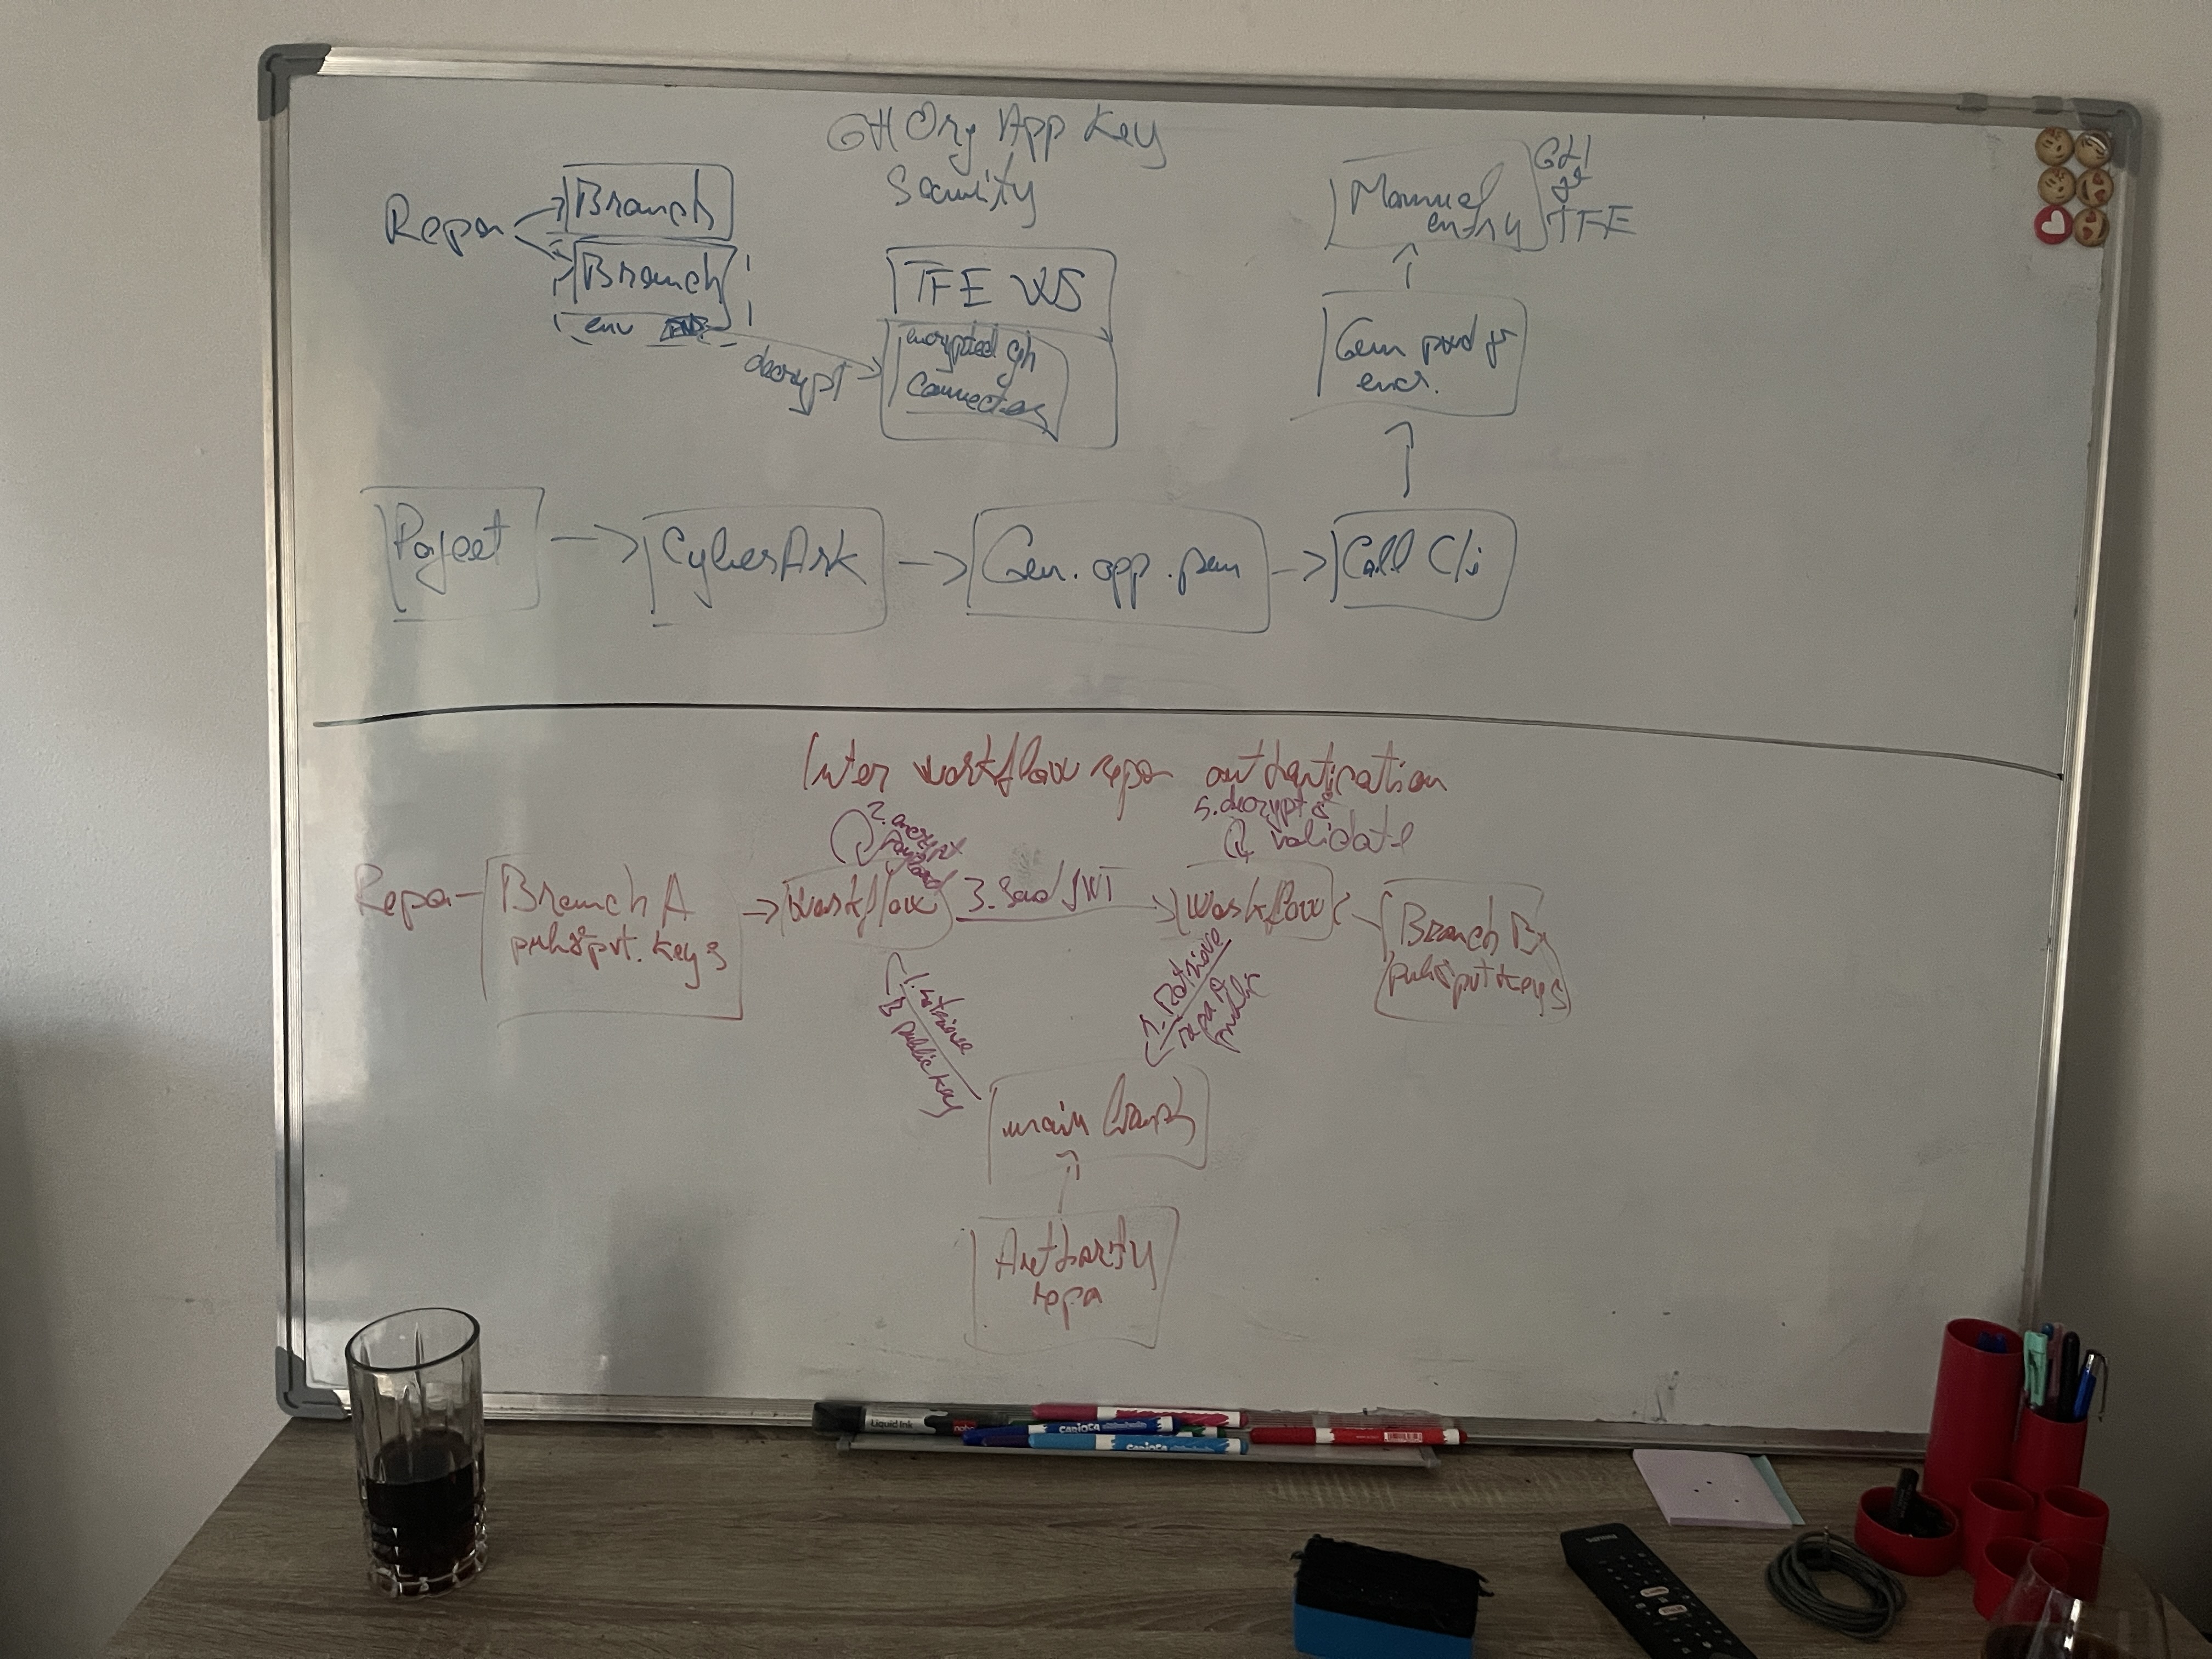 GH Org App Key
Security
Repo
Branch
Branch
env
decrypt
TFE WS
encrypted gh
Connection
Manual
entry
GH
&
TFE
Gen pwd for
encr.
Pajeet
CyberArk
Gen. app. pem
Call Cli
Inter workflow repo authentication
2. encrypt
Payload
5. decrypt &
validate
Repo
Branch A
pub&pvt. keys
Workflow
3. Send JWT
Workflow
Branch B
pub&pvt keys
1. retrieve
B public key
Retrieve
repo A
public
main branch
Authority
repo
Liquid Ink
CARIOCA
CARIOCA